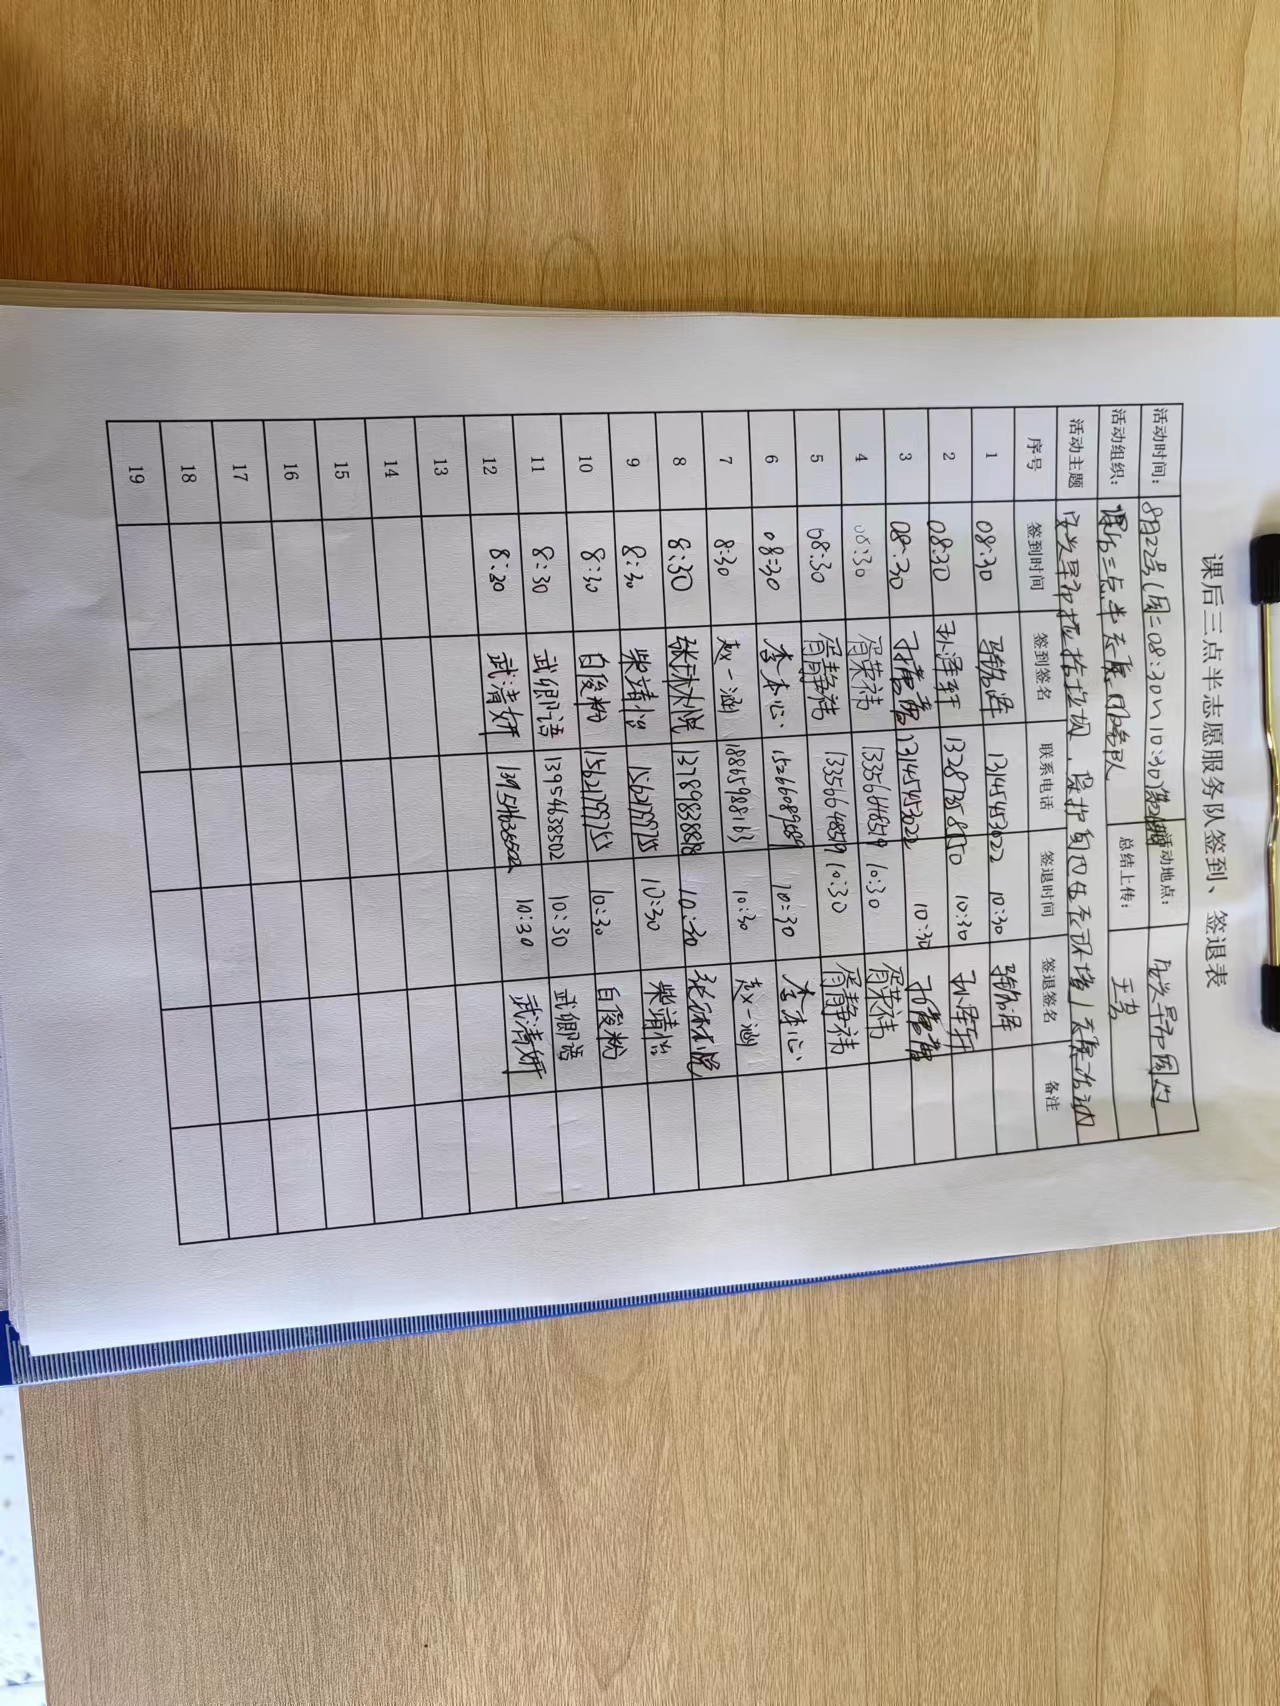 课后三点半志愿服务队签到、签退表
活动时间： 8月22号(周二08:30~10:30) 活动地点：
活动组织： 课后三点半志愿服务队 总结上传： 王芳
活动主题
序号 签到时间 签到签名 联系电话 签退时间 签退签名 备注
1 08:30 13145453022 10:30
2 08:30 孙泽轩 10:30 孙泽轩
3 08:30 13145453022 10:30
4 08:30 胥荣祎 13356648519 10:30 胥荣祎
5 08:30 胥静祎 13356648519 10:30 胥静祎
6 08:30 李本心 10:30 李本心
7 8:30 赵一涵 18865988163 10:30 赵一涵
8 8:30 10:30
9 8:30 柴靖怡 15621799755 10:30 柴靖怡
10 8:30 白俊粉 15621799755 10:30 白俊粉
11 8:30 13954638502 10:30
12 8:20 武清妍 13954638502 10:30 武清妍
13
14
15
16
17
18
19